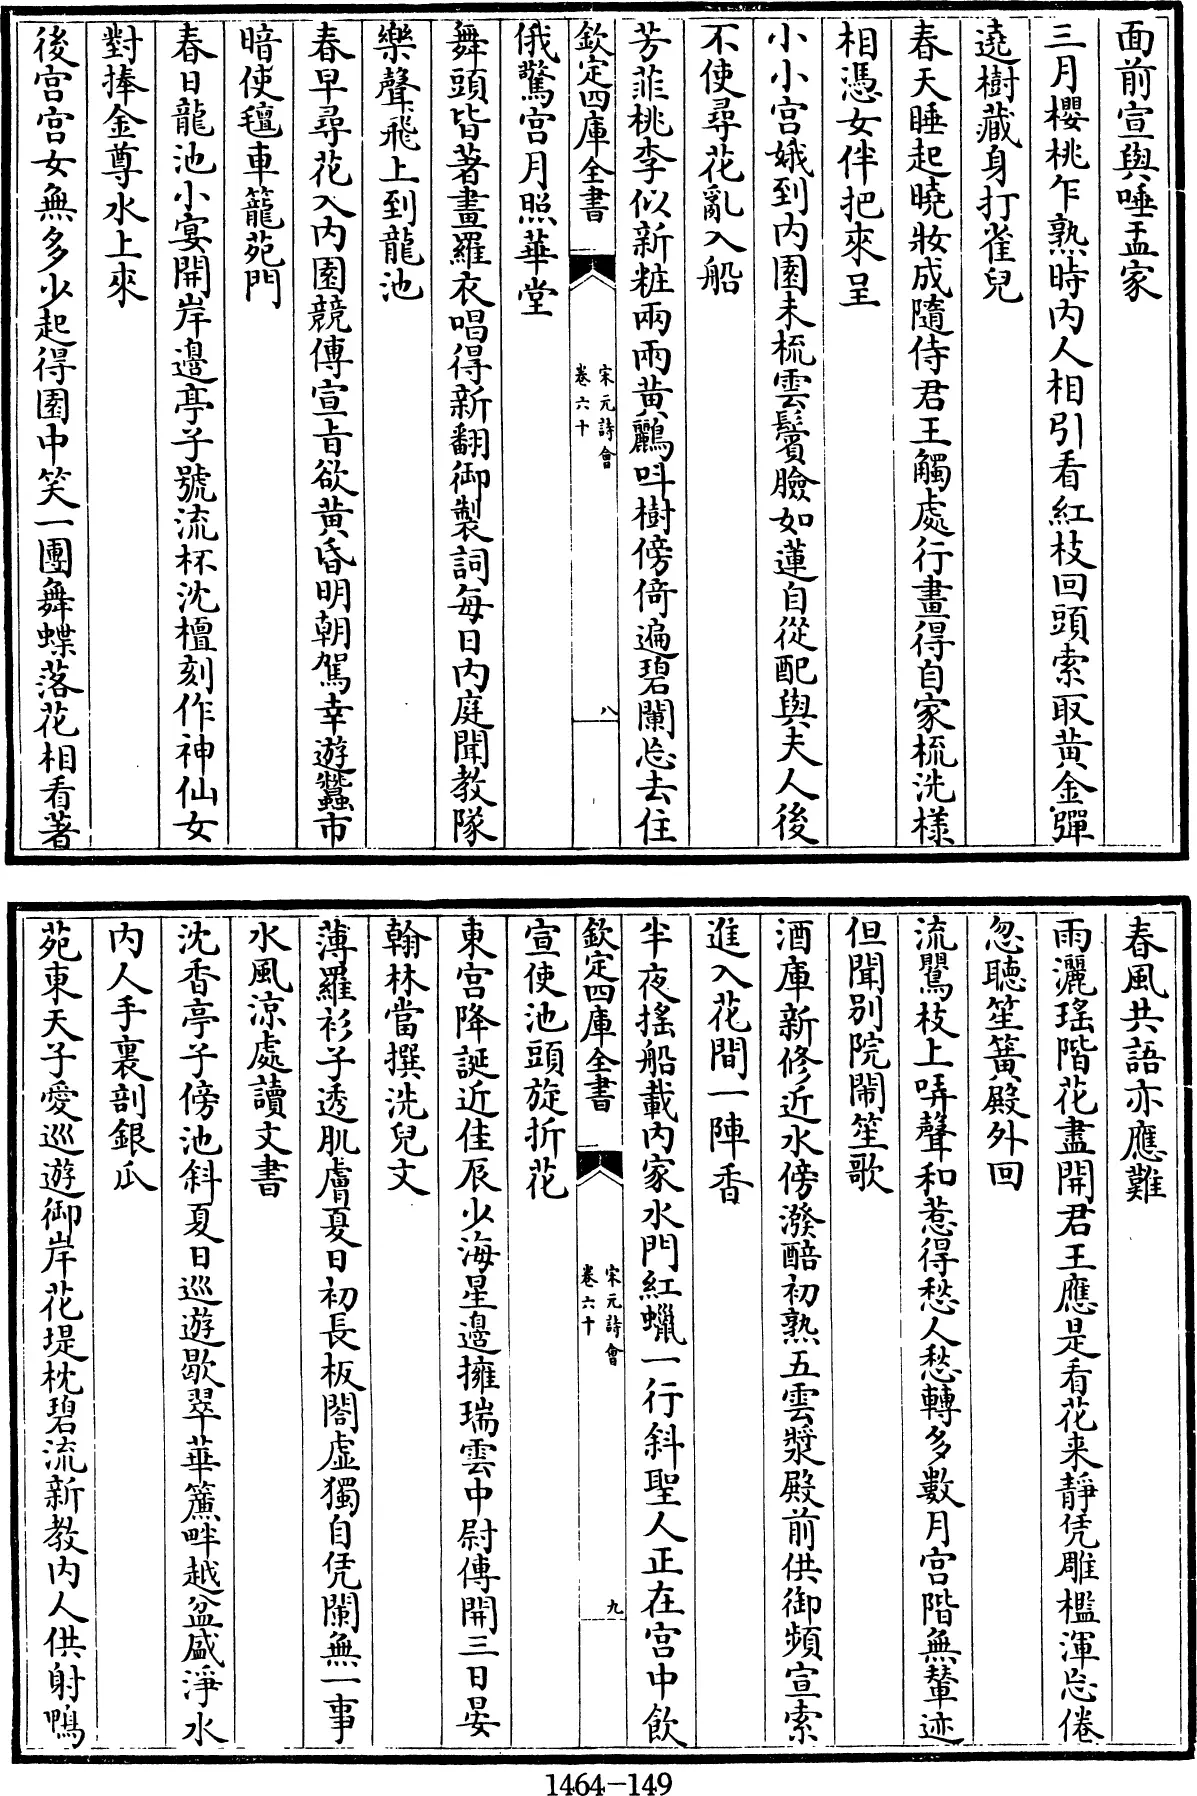 面前宣與唾盂家
三月櫻桃乍熟時内人相引看紅枝回頭索取黄金彈
遶樹藏身打雀兒
春天睡起曉妝成隨侍君王觸處行畫得自家梳洗様
相憑女伴把來呈
小小宫娥到内園未梳雲鬢臉如蓮自從配與夫人後
不使尋花亂入船
芳菲桃李似新粧兩兩黄鸝呌樹傍倚遍碧闌忘去住
欽定四庫全書
宋元詩會
卷六十
八
俄驚宫月照華堂
舞頭皆著畫羅衣唱得新翻御製詞每日内庭聞教隊
樂聲飛上到龍池
春早尋花入内園競傳宣㫖欲黄昏明朝駕幸遊蠶市
暗使氊車籠苑門
春日龍池小宴開岸邉亭子號流杯沈檀刻作神仙女
對捧金尊水上來
後宫宫女無多少起得園中笑一團舞蝶落花相看著
春風共語亦應難
雨灑瑤階花盡開君王應是看花来靜凭雕檻渾忘倦
忽聴笙簧殿外回
流鶯枝上哢聲和惹得愁人愁轉多數月宫階無輦迹
但聞别院閙笙歌
酒庫新修近水傍潑醅初熟五雲漿殿前供御頻宣索
進入花間一陣香
半夜摇船載内家水門紅蠟一行斜聖人正在宫中飲
欽定四庫全書
宋元詩會
卷六十
九
宣使池頭旋折花
東宫降誕近佳辰少海星邉擁瑞雲中尉傳開三日宴
翰林當撰洗兒文
薄羅衫子透肌膚夏日初長板閤虚獨自凭闌無一事
水風凉處讀文書
沈香亭子傍池斜夏日巡遊歇翠華簾畔越盆盛淨水
内人手裏剖銀瓜
苑東天子愛巡遊御岸花堤枕碧流新教内人供射鴨
1464-149